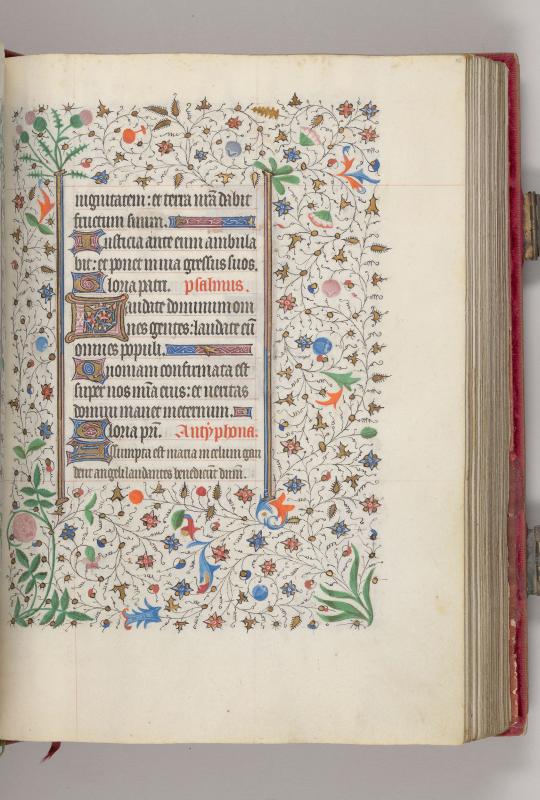 nignitatem : et terra nr̄a dabit
fructum suum.
Iusticia ante eum ambula
bit : et ponet in via gressus suos.
Gloria patri. psalmus.
Laudate dominum om
nes gentes : laudate eū
omnes populi.
Quoniam confirmata est
super nos mīa eius : et veritas
domini manet ineternum.
Gloria pr̄i. Antyphona.
Assumpta est maria in celum gau
dent angeli laudantes benedicūt dnm̄.